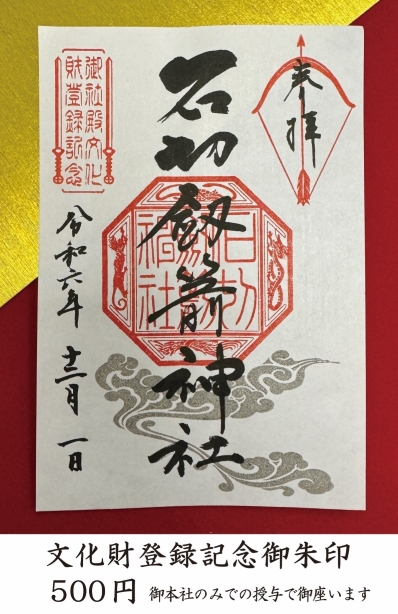 奉拝
石切劔箭神社
御社殿文化
財登録記念
令和六年 十二月 一日
文化財登録記念御朱印
500円 御本社のみでの授与で御座います